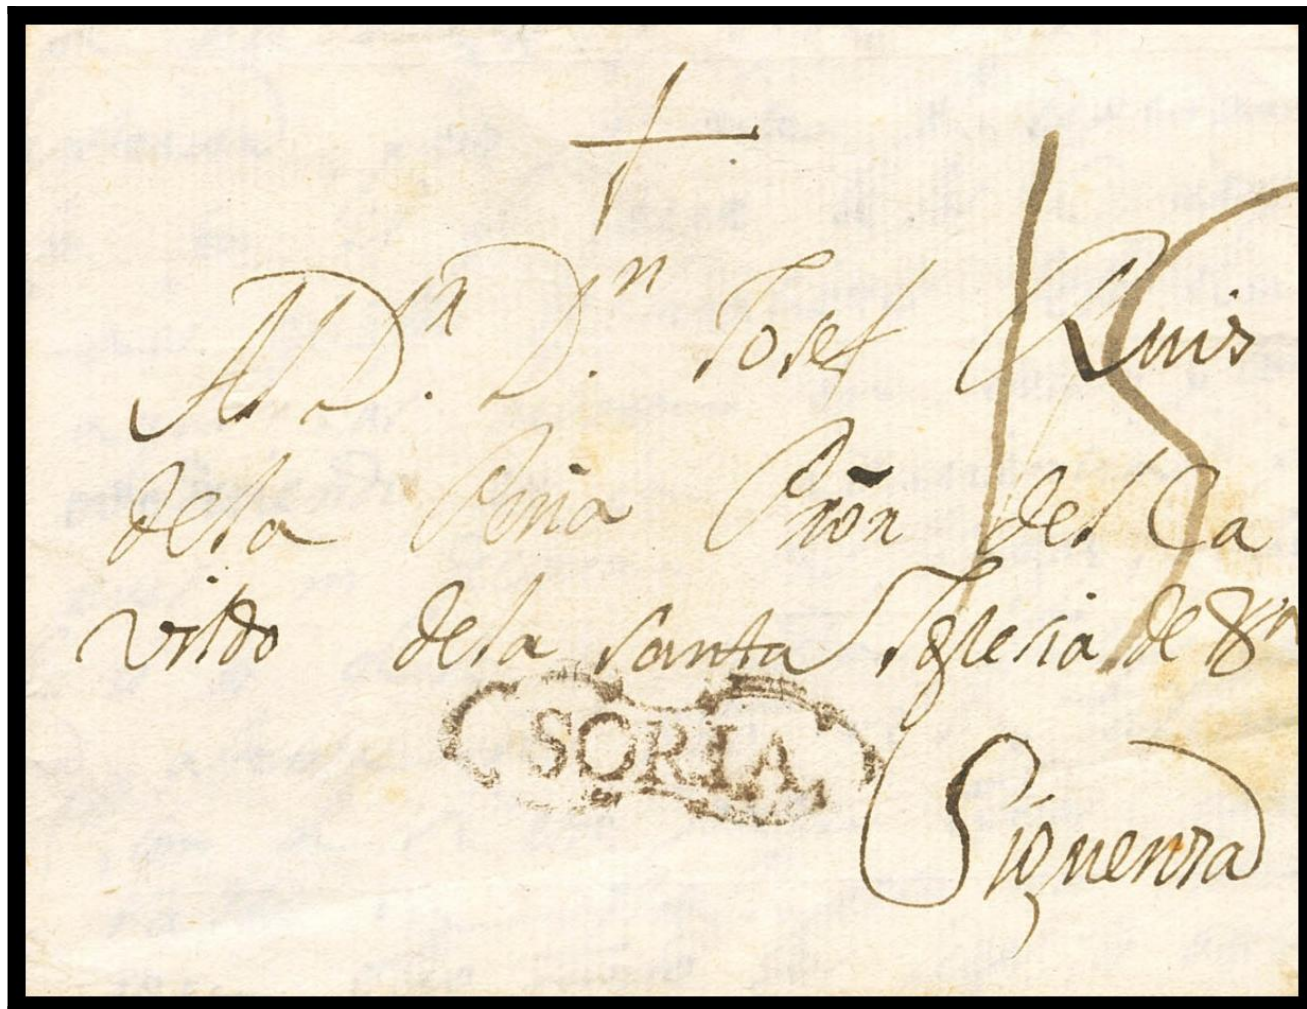 Al D.ʳ D.ⁿ Josef Ruis
dela Peña Pnõn del Ca
vildo dela santa Iglesia de
SORIA
Siguenza